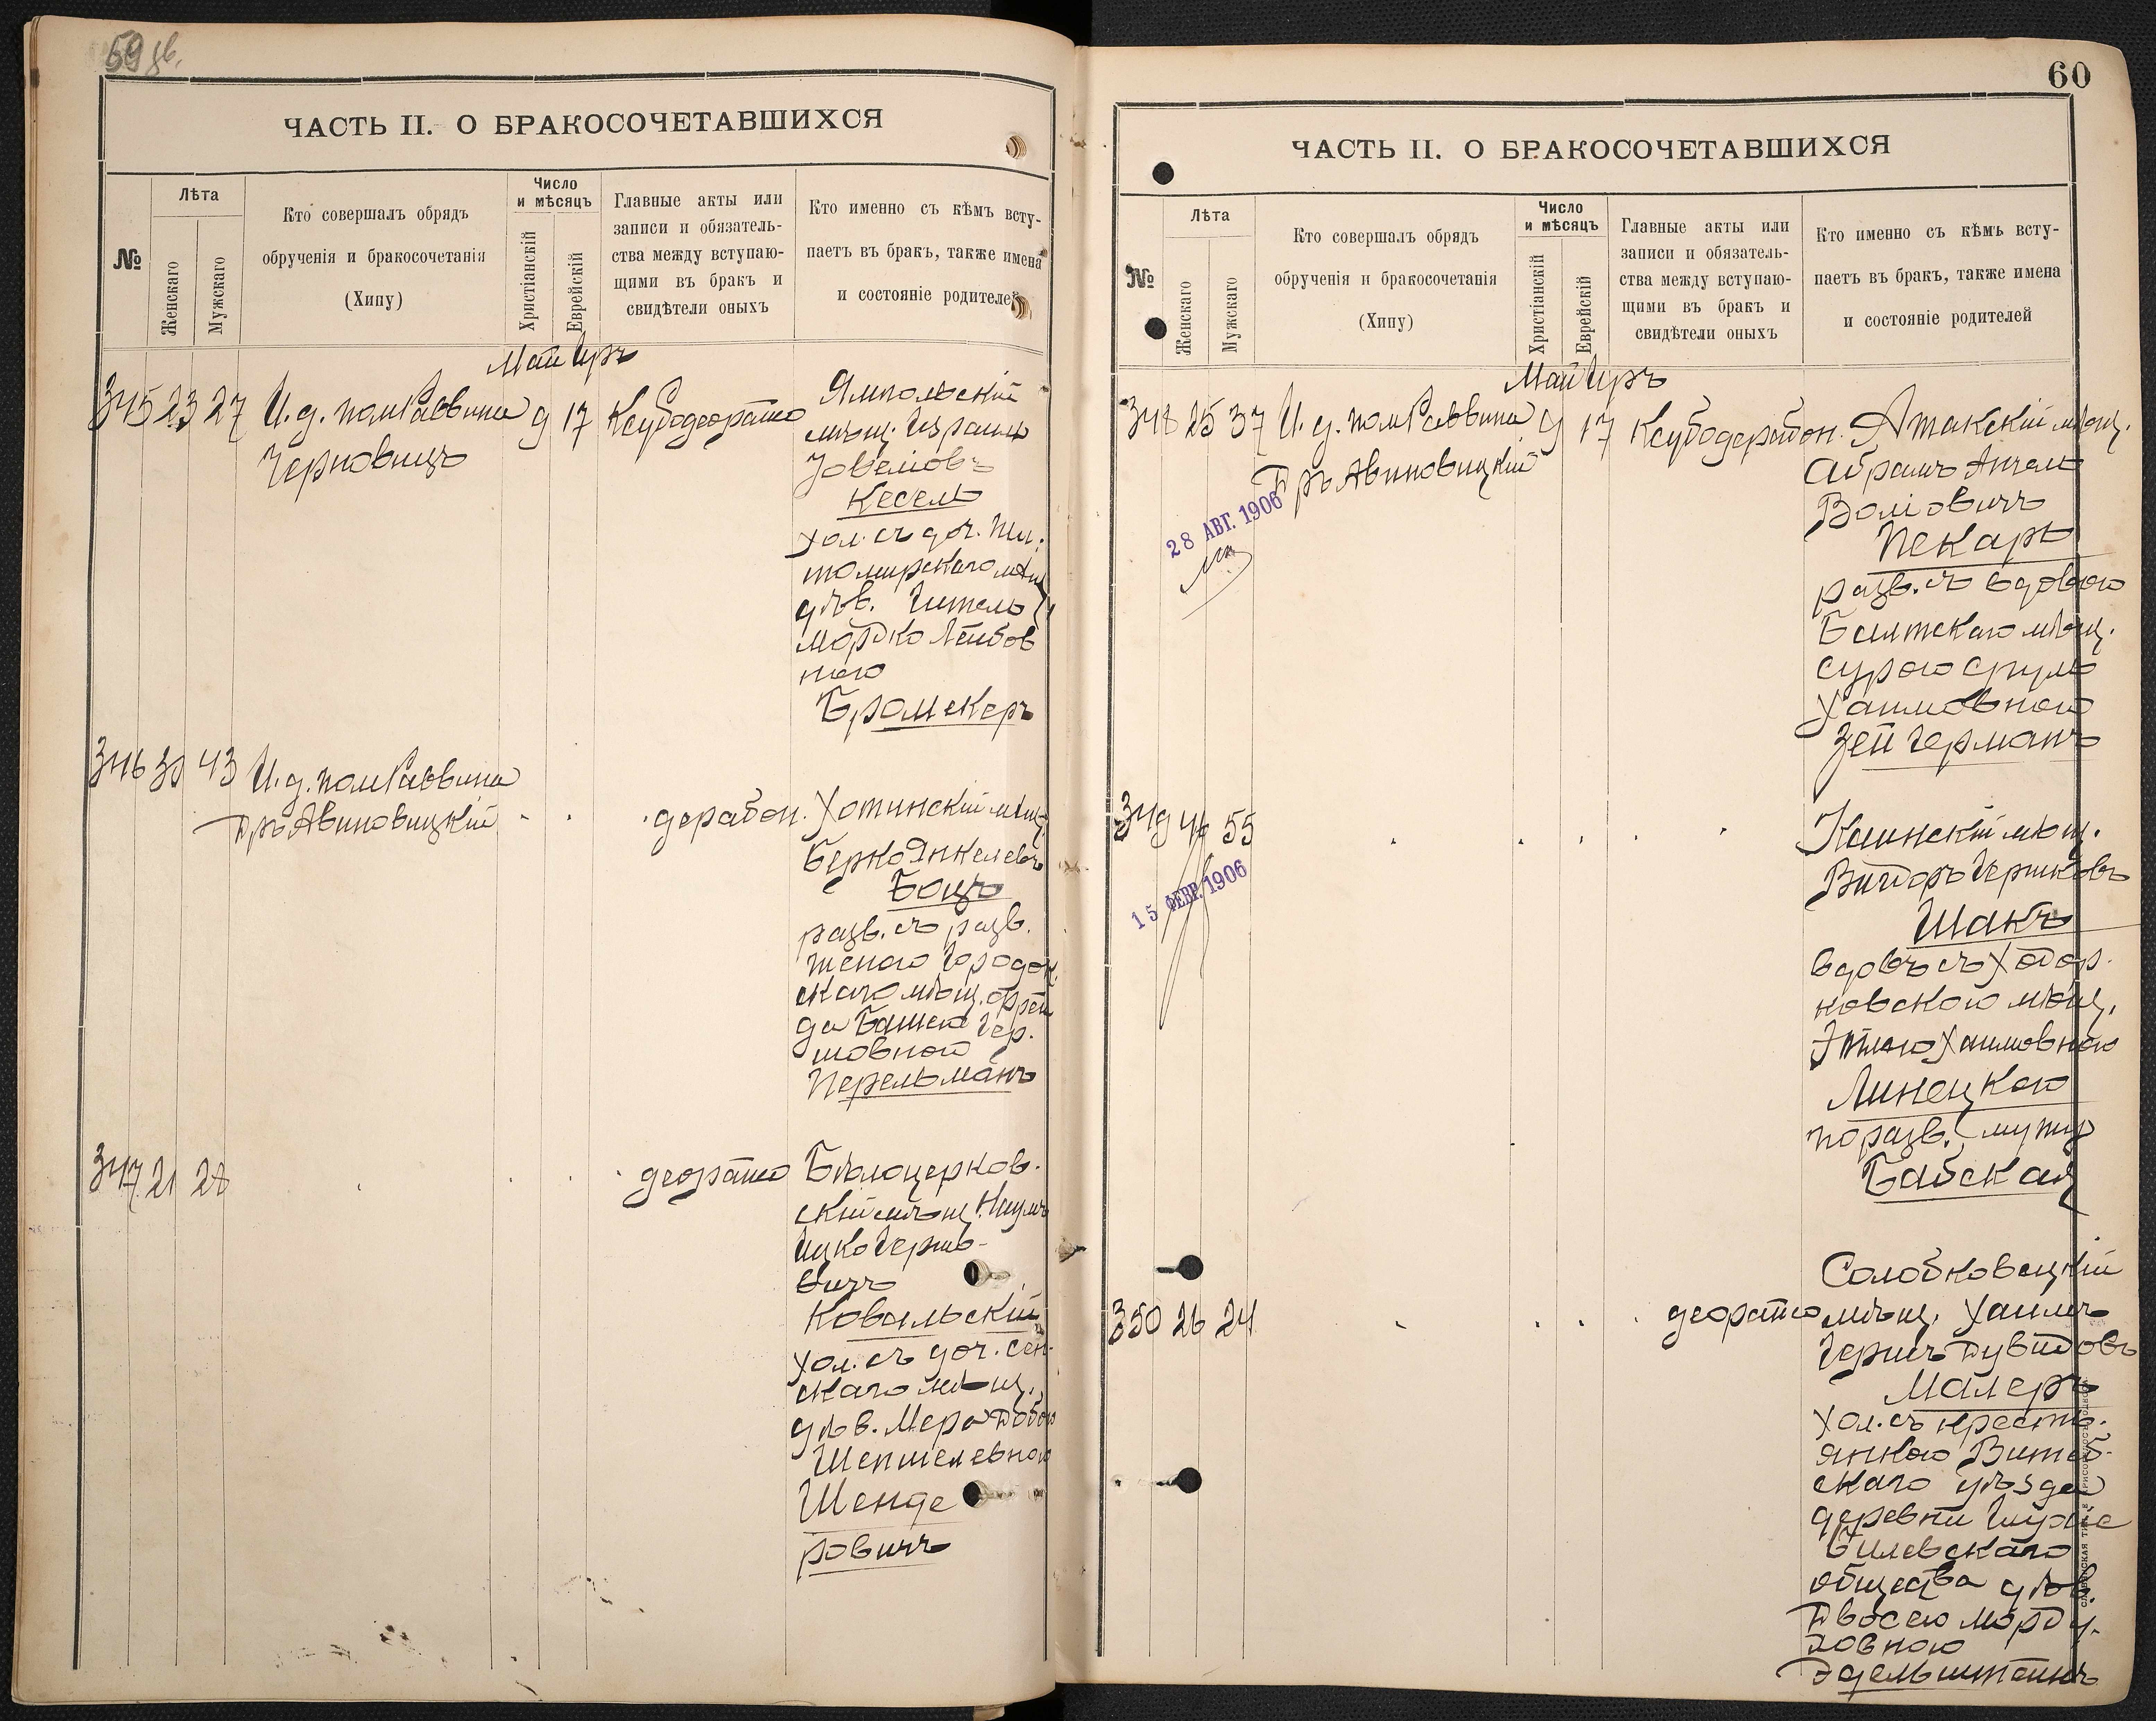 59 об.
ЧАСТЬ II. О БРАКОСОЧЕТАВШИХСЯ
№
Лѣта
Женскаго
Мужскаго
Кто совершалъ обрядъ
обрученія и бракосочетанія
(Хипу)
Число
и мѣсяцъ
Христіанскій
Еврейскій
Главные акты или
записи и обязатель-
ства между вступаю-
щими въ бракъ и
свидѣтели оныхъ
Кто именно съ кѣмъ всту-
паетъ въ бракъ, также имена
и состояніе родителей
Май Иръ
345 23 27 И. д. пом Раввина 9 17
Черновицъ
Ямпольскій
мѣщ. Израиль
Кесель
хол. съ доч. Жи-
томирскаго мѣщ
дѣв. Гитель
Мордко Лейбов
ною
346 43 И. д. пом Раввина
Дръ Авиновицкій
Хотинскій мѣщ.
Берко Янкелевъ
Боцъ
разв. съ разв.
женою Городок
скаго мѣщ. Фрей
да Башею Гер-
шовной
Перельманъ
347 21 28
Бѣлоцерков-
скій мѣщ. Наумъ
Ицко Герш-
вичъ
Ковальскій
хол. съ доч. Сен-
скаго мѣщ.
дѣв. Мера Добою
Шепшелевною
Шенде
ровичъ
60
ЧАСТЬ II. О БРАКОСОЧЕТАВШИХСЯ
№
Лѣта
Женскаго
Мужскаго
Кто совершалъ обрядъ
обрученія и бракосочетанія
(Хипу)
Число
и мѣсяцъ
Христіанскій
Еврейскій
Главные акты или
записи и обязатель-
ства между вступаю-
щими въ бракъ и
свидѣтели оныхъ
Кто именно съ кѣмъ всту-
паетъ въ бракъ, также имена
и состояніе родителей
Май Иръ
348 25 37 И. д. пом Раввина 9 17
Дръ Авиновицкій
28 АВГ. 1906
Атакскій мѣщ.
Абрамъ Анчель
Волiовичъ
Пекарь
разв. съ вдовою
Балтскаго мѣщ.
Сурою Срулъ
Хаимовною
Зейгерманъ
349 46 55
15 ФЕВР. 1906
мѣщ.
Вигдоръ Гершковъ
Шакъ
вдовъ съ Ходор-
ковскою мѣщ.
Этлею Хаимовною
Линецкою
по разв. мужу
Бабская
350 26 24
Солобковецкій
мѣщ. Хаимъ
Гершъ Дувидовъ
Малеръ
хол. съ кресть-
янкою Витеб-
скаго уѣзда
деревни
общества дѣв.
Двосею Морду-
ховною
Эдельштейнъ